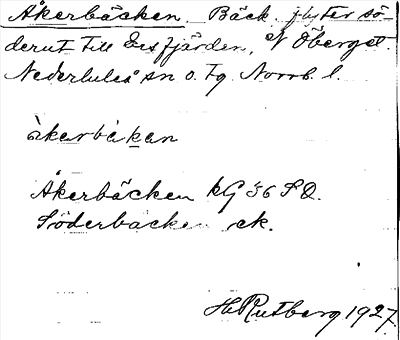 Åkerbäcken. Bäck, flyter sö-
derut till Ersfjärden, N Öberget.
Nederluleå sn o. tg. Norrb. l.
åkerbäkan
Åkerbäcken kG 36 S.O.
Söderbäcken ek.
H. Rutberg 1927.